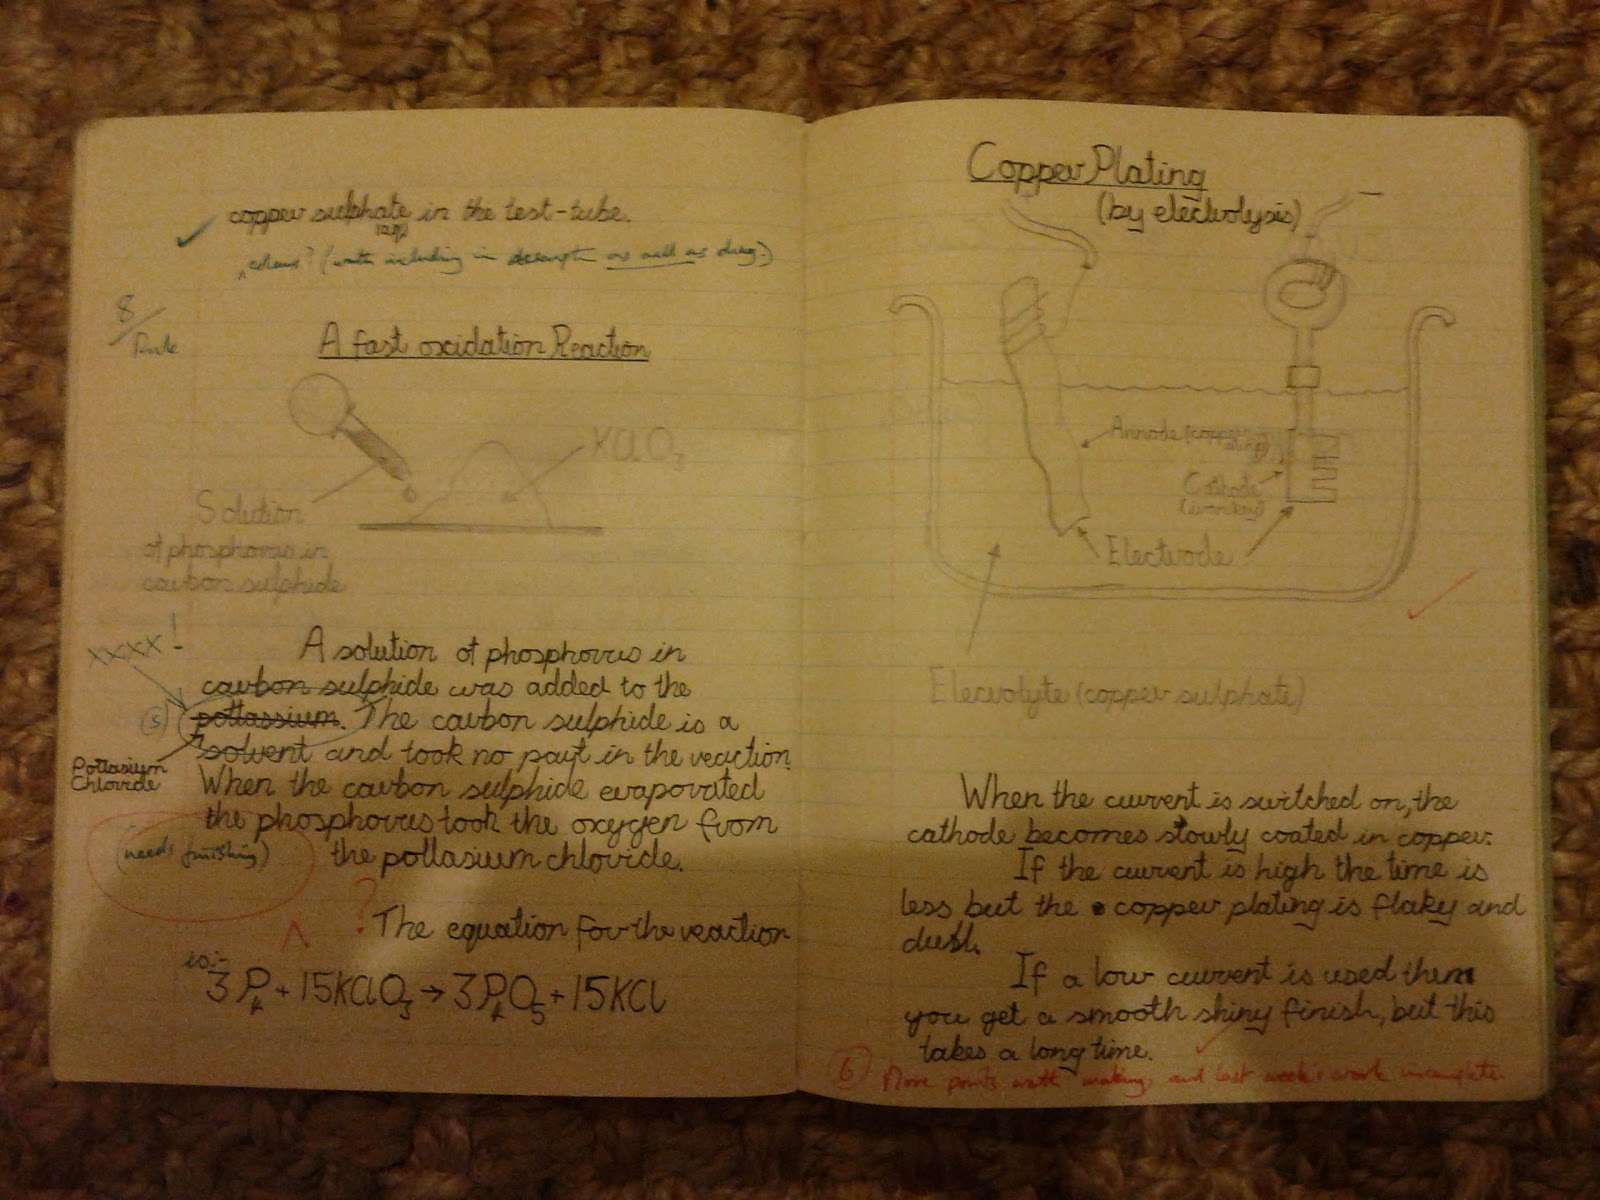 copper sulphate in the test-tube.
(aq)
colour? (worth including in descript as well as diag.)
8/
Rule
A fast oxidation Reaction
KClO3
Solution
of phosphorus in
carbon sulphide
XXXX!
A solution of phosphorus in
carbon sulphide was added to the
(s) pottassium. The carbon sulphide is a
solvent and took no part in the reaction.
Pottasium
Chloride
When the carbon sulphide evaporated
the phosphorus took the oxygen from
the pottasium chloride.
(needs finishing)
?
The equation for the reaction
is:-
3P4 + 15KClO3 → 3P4O5 + 15KCl
Copper Plating
(by electrolysis)
Annode (copper
Cathode
(iron key)
Electrode
Electrolyte (copper sulphate)
When the current is switched on, the
cathode becomes slowly coated in copper.
If the current is high the time is
less but the copper plating is flaky and
dull.
If a low current is used then
you get a smooth shiny finish, but this
takes a long time.
6 More points worth making, and last week's work incomplete.